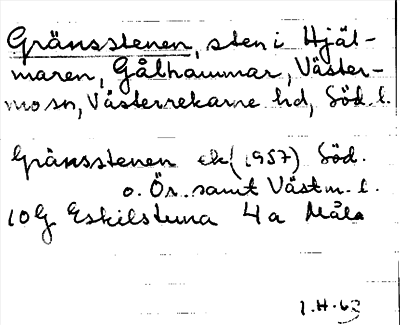 Gränsstenen, sten i Hjäl-
maren, Gålhammar, Väster-
mo sn, Västerrekarne hd, Söd. l.
Gränsstenen ek (1957) Söd.
o. Ör. samt Västm. l.
10G Eskilstuna 4a Måla
1.H.63